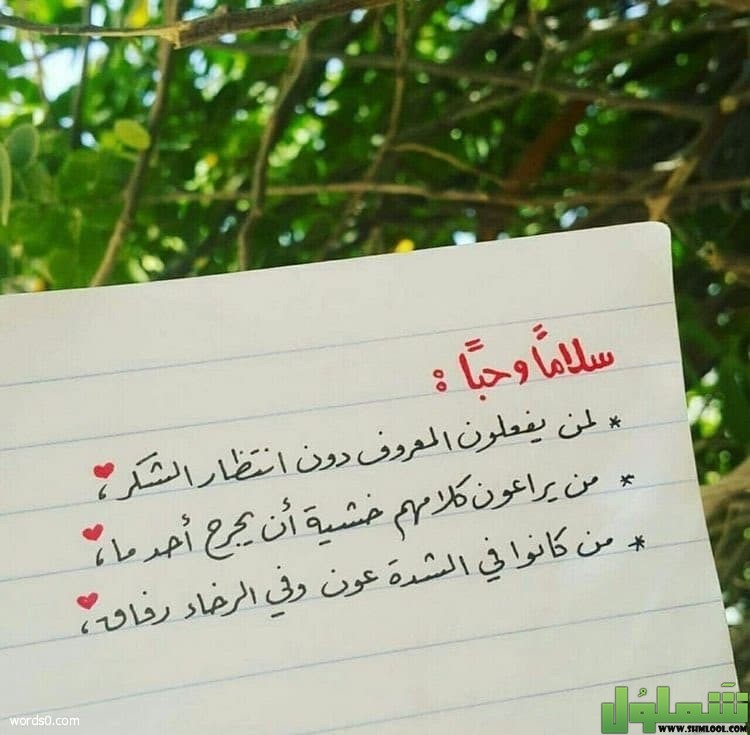 سلاماً وحباً :
* لمن يفعلون المعروف دون انتظار الشكر ،
* من يراعون كلامهم خشية أن يجرح أحد ما ،
* من كانوا في الشدة عون وفي الرخاء رفاق ،
words0.com
شملول
WWW.SHMLOOL.COM